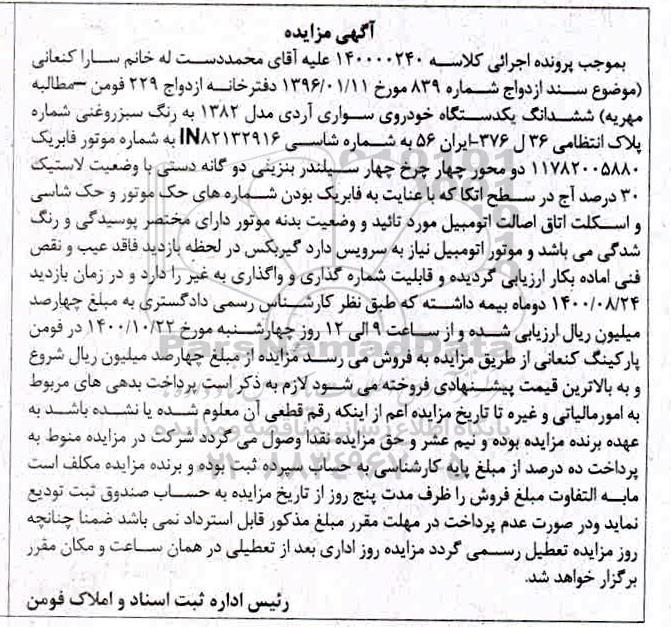 آگهی مزایده
بموجب پرونده اجرائی کلاسه ۱۴۰۰۰۰۲۴۰ علیه آقای محمددست له خانم سارا کنعانی
(موضوع سند ازدواج شماره ۸۳۹ مورخ ۱۳۹۶/۰۱/۱۱ دفترخانه ازدواج ۲۲۹ فومن –مطالبه
مهریه) ششدانگ یکدستگاه خودروی سواری آردی مدل ۱۳۸۲ به رنگ سبزروغنی شماره
پلاک انتظامی ۳۶ ل ۳۷۶-ایران ۵۶ به شماره شاسی IN۸۲۱۳۲۹۱۶ به شماره موتور فابریک
۱۱۷۸۲۰۰۵۸۸۰ دو محور چهار چرخ چهار سیلندر بنزینی دو گانه دستی با وضعیت لاستیک
۳۰ درصد آج در سطح اتکا که با عنایت به فابریک بودن شماره های حک موتور و حک شاسی
و اسکلت اتاق اصالت اتومبیل مورد تائید و وضعیت بدنه موتور دارای مختصر پوسیدگی و رنگ
شدگی می باشد و موتور اتومبیل نیاز به سرویس دارد گیربکس در لحظه بازدید فاقد عیب و نقص
فنی اماده بکار ارزیابی گردیده و قابلیت شماره گذاری و واگذاری به غیر را دارد و در زمان بازدید
۱۴۰۰/۰۸/۲۴ دوماه بیمه داشته که طبق نظر کارشناس رسمی دادگستری به مبلغ چهارصد
میلیون ریال ارزیابی شده و از ساعت ۹ الی ۱۲ روز چهارشنبه مورخ ۱۴۰۰/۱۰/۲۲ در فومن
پارکینگ کنعانی از طریق مزایده به فروش می رسد مزایده از مبلغ چهارصد میلیون ریال شروع
و به بالاترین قیمت پیشنهادی فروخته می شود لازم به ذکر است پرداخت بدهی های مربوط
به امورمالیاتی و غیره تا تاریخ مزایده اعم از اینکه رقم قطعی آن معلوم شده یا نشده باشد به
عهده برنده مزایده بوده و نیم عشر و حق مزایده نقدا وصول می گردد شرکت در مزایده منوط به
پرداخت ده درصد از مبلغ پایه کارشناسی به حساب سپرده ثبت بوده و برنده مزایده مکلف است
مابه التفاوت مبلغ فروش را ظرف مدت پنج روز از تاریخ مزایده به حساب صندوق ثبت تودیع
نماید ودر صورت عدم پرداخت در مهلت مقرر مبلغ مذکور قابل استرداد نمی باشد ضمنا چنانچه
روز مزایده تعطیل رسمی گردد مزایده روز اداری بعد از تعطیلی در همان ساعت و مکان مقرر
برگزار خواهد شد.
رئیس اداره ثبت اسناد و املاک فومن
ParsNamadData
پایگاه اطلاع رسانی مناقصه و مزایده